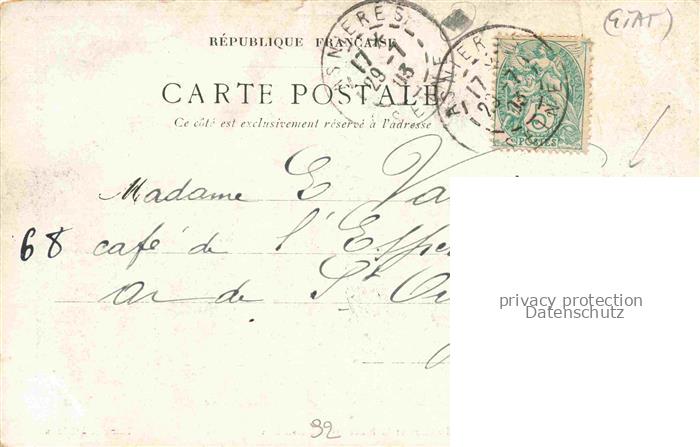 (ETAT)
RÉPUBLIQUE FRANÇAISE
CARTE POSTALE
Ce côté est exclusivement réservé à l'adresse
ASNIERES
17
29 -7
03
SEINE
ASNIER
17
POSTES
Madame E Va
68 café de l'Espe
Av de St Ou
privacy protection
Datenschutz
92